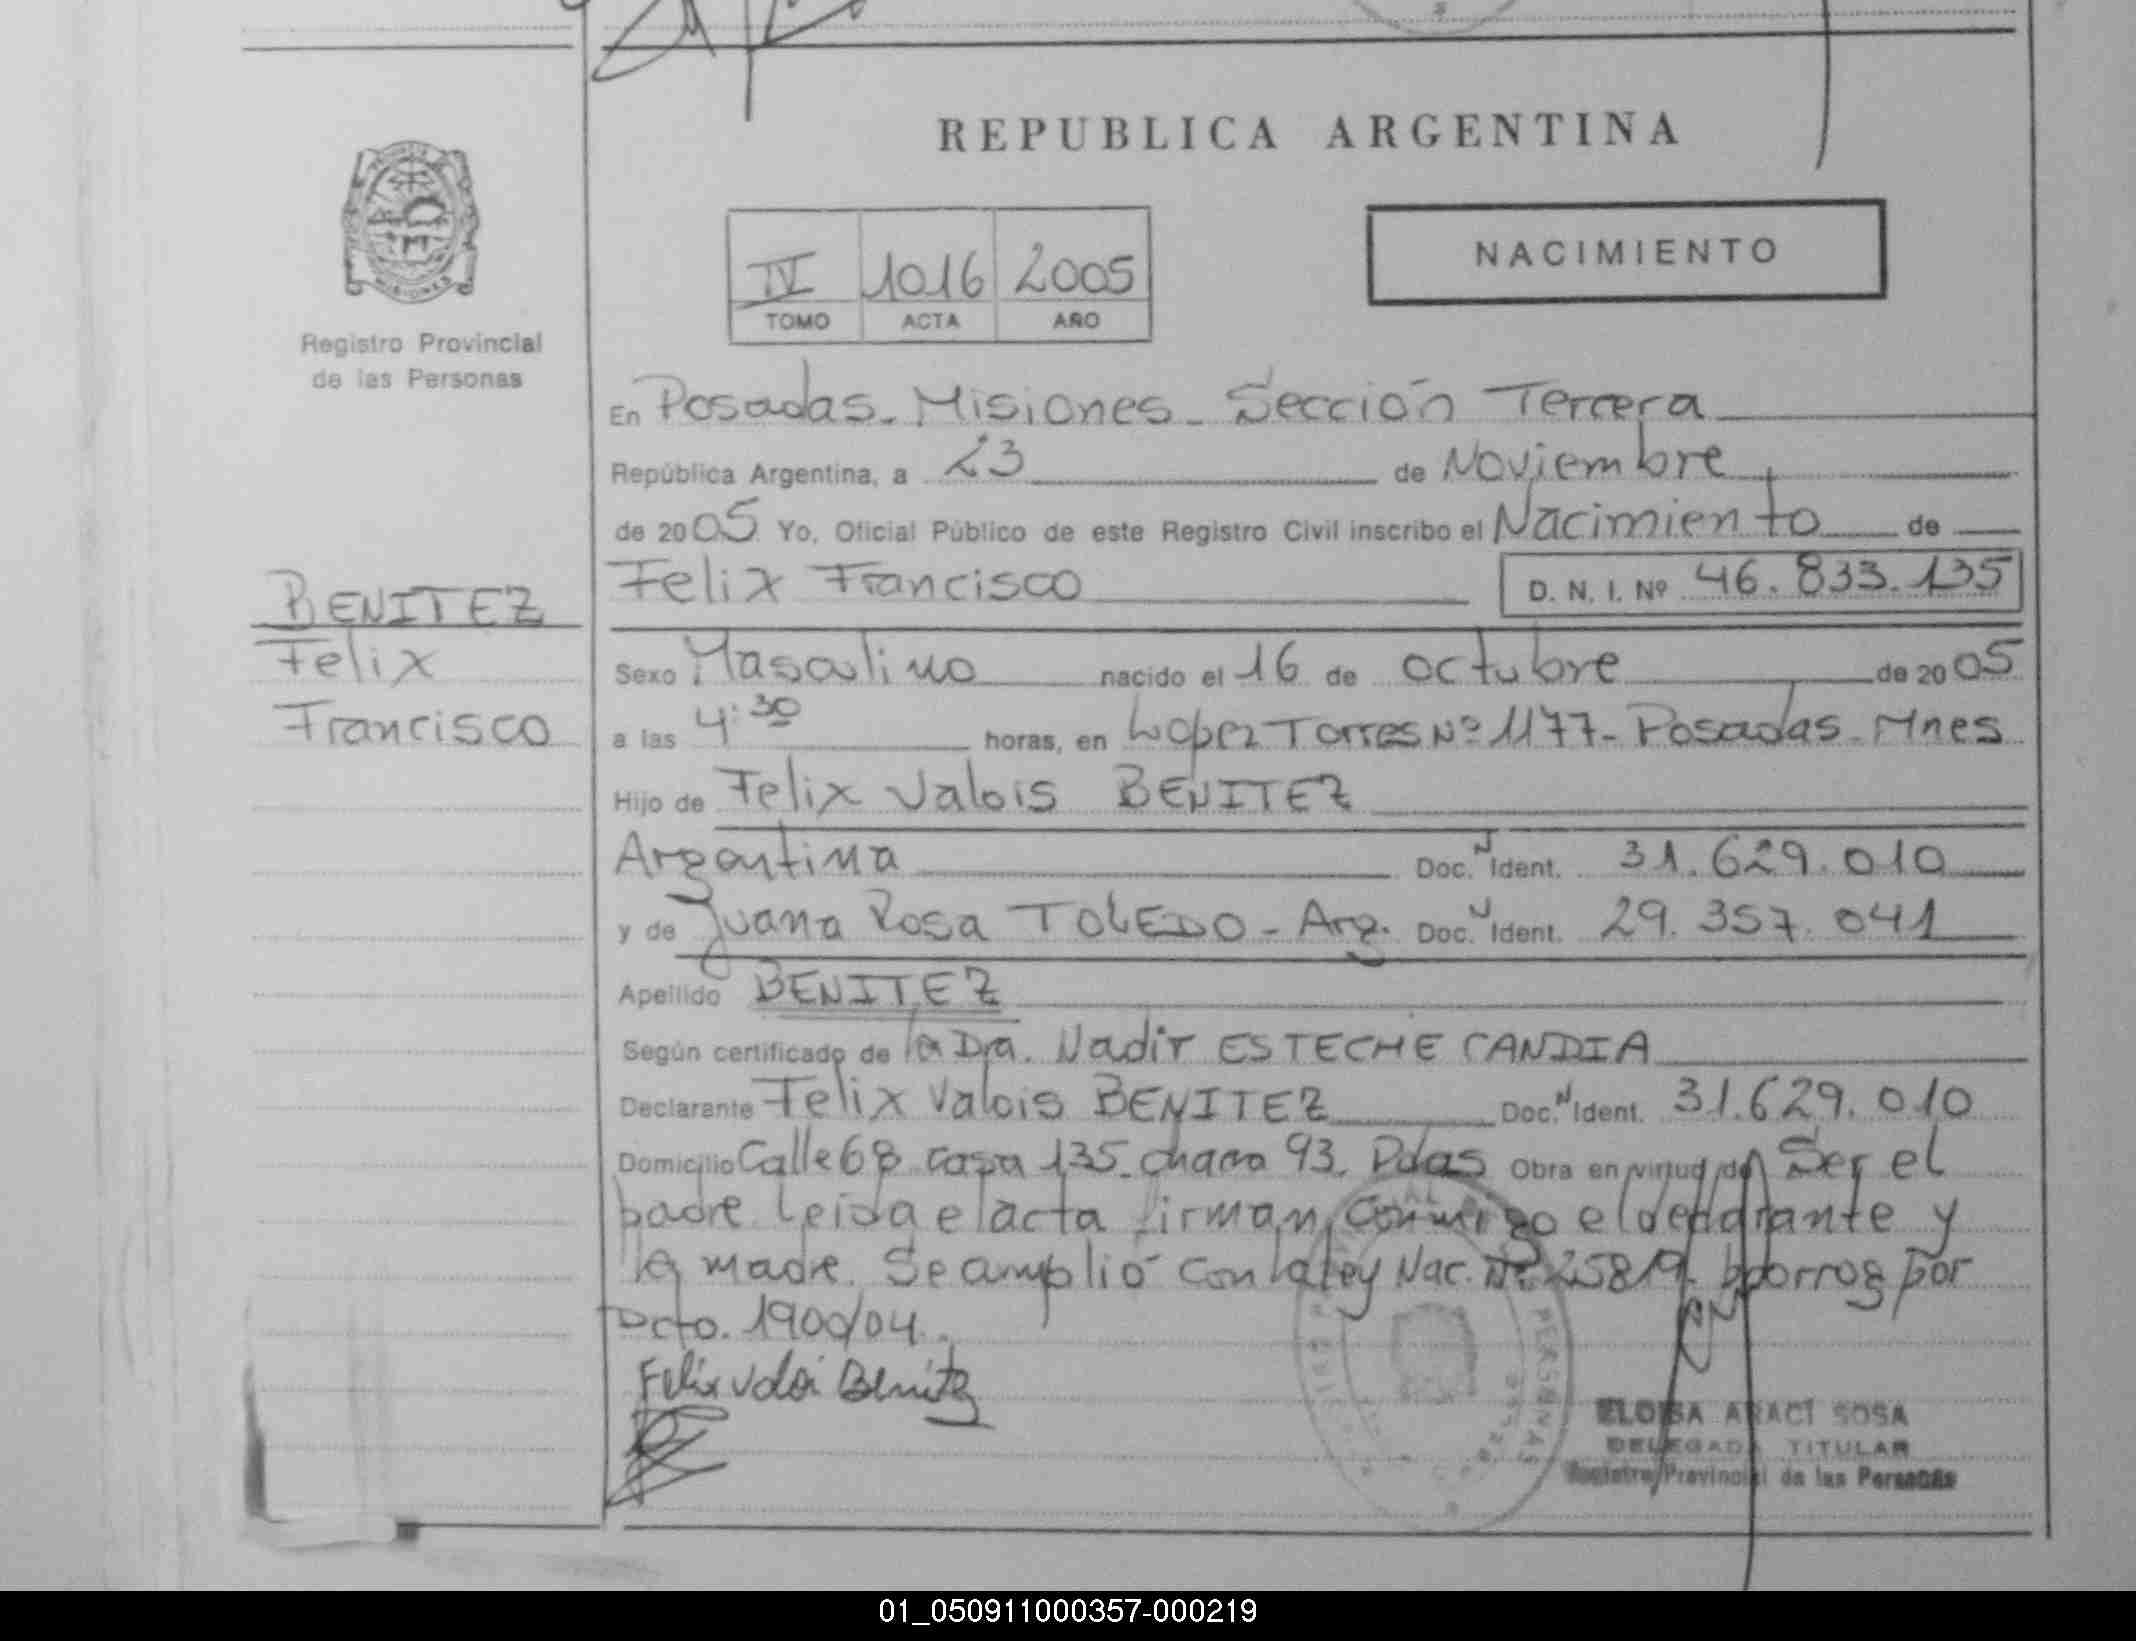 REPUBLICA ARGENTINA
NACIMIENTO
IV 1016 2005
TOMO ACTA AÑO
MISIONES
Registro Provincial
de las Personas
BENITEZ
Felix
Francisco
En Posadas - Misiones - Sección Tercera
República Argentina, a 23 de Noviembre
de 2005 Yo, Oficial Público de este Registro Civil inscribo el Nacimiento de
Felix Francisco D. N. I. Nº 46.833.135
Sexo Masculino nacido el 16 de octubre de 2005
a las 4:30 horas, en Lopez Torres Nº 1177- Posadas - Mnes
Hijo de Felix Valois BENITEZ
Argentina Doc. N Ident. 31.629.010
y de Juana Rosa TOLEDO - Arg. Doc. N Ident. 29.357.041
Apellido BENITEZ
Según certificado de la Dra. Nadir ESTECHE CANDIA
Declarante Felix Valois BENITEZ Doc. N Ident. 31.629.010
Domicilio Calle 68 casa 135 - chacra 93. Pdas Obra en virtud de Ser el
padre. Leida el acta firman conmigo el declarante y
la madre. Se amplió con la ley Nac. Nº 25819 - por
Dcto. 1900/04.
Felix Valois Benitez
PERSONAS
ELOISA ARACI SOSA
DELEGADA TITULAR
Registro Provincial de las Personas
01_050911000357-000219